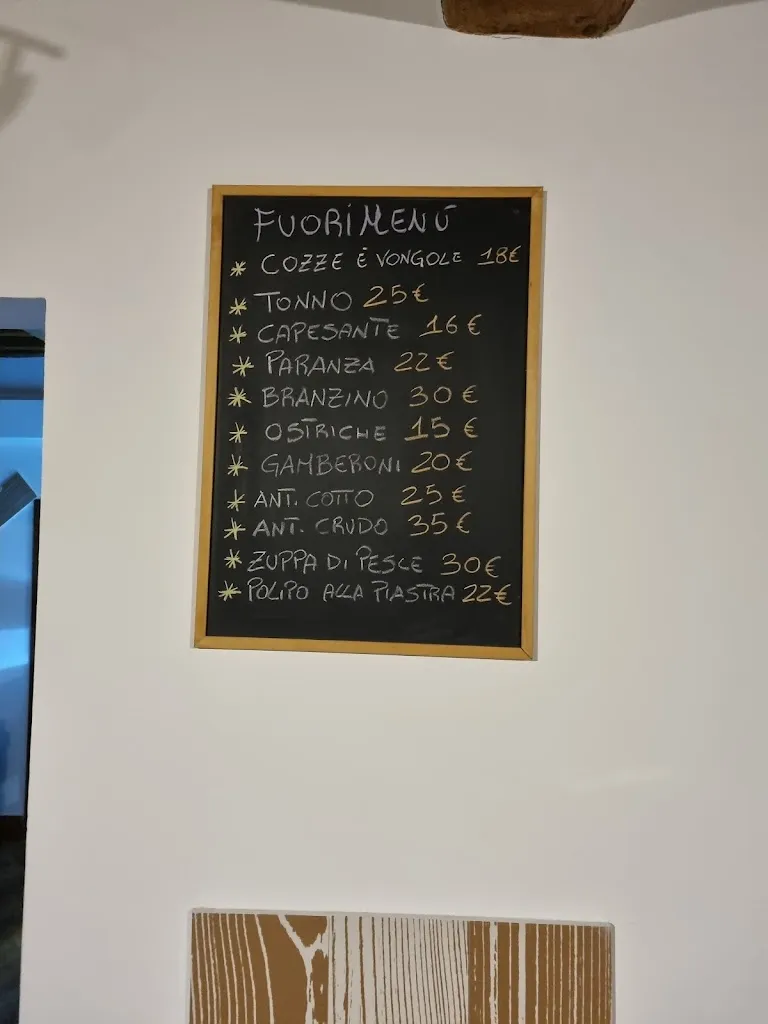 FUORI MENÚ
* COZZE É VONGOLE 18€
* TONNO 25€
* CAPESANTE 16€
* PARANZA 22€
* BRANZINO 30€
* OSTRICHE 15€
* GAMBERONI 20€
* ANT. COTTO 25€
* ANT. CRUDO 35€
* ZUPPA DI PESCE 30€
* POLIPO ALLA PIASTRA 22€